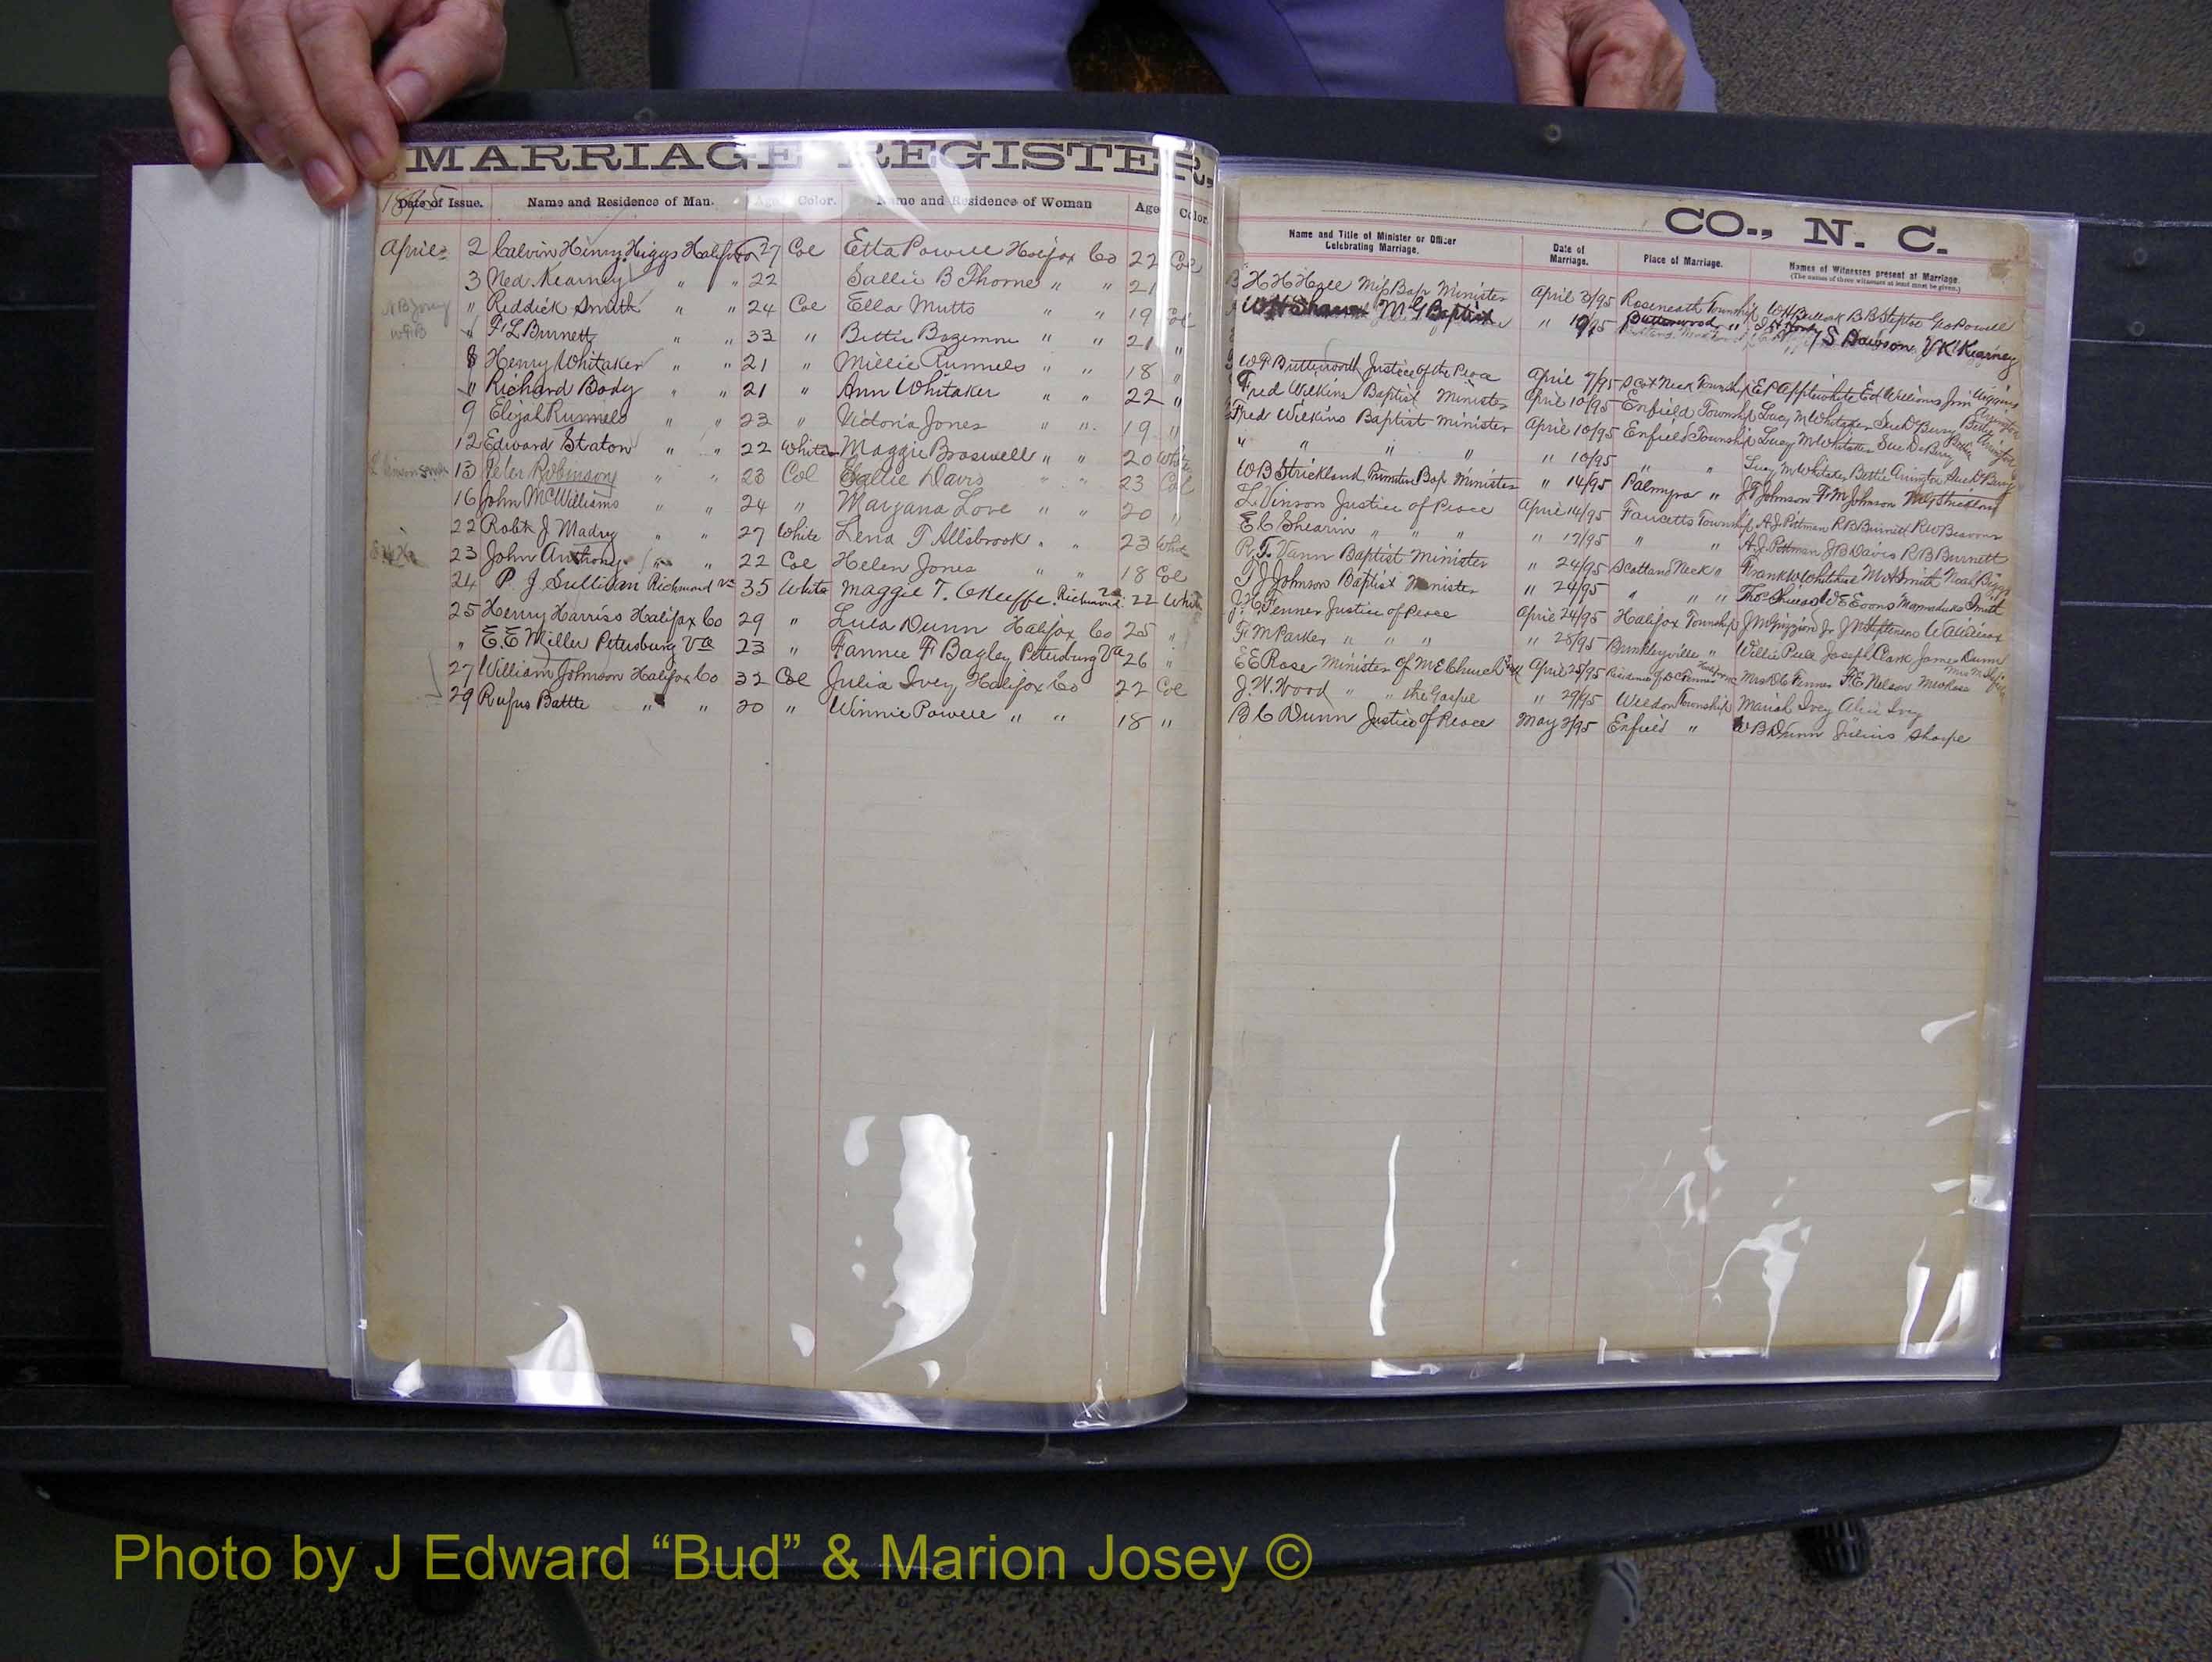 MARRIAGE REGISTER.
1895
Date of Issue. Name and Residence of Man. Age Color. Name and Residence of Woman Age Color.
April 2 Calvin Henry Higgs Halifax 27 Col Etta Powell Halifax Co 22 Col
3 Ned Kearney " " 22 Sallie B Thorne " " 21
" Riddick Smith " " 24 Col Ella Mutts " " 19 Col
" F L Burnett " " 33 " Bettie Bozeman " " 21 "
8 Henry Whitaker " " 21 " Millie Runnels " " 18 "
" Richard Body " " 21 " Ann Whitaker " " 22 "
9 Elijah Runnels " " 23 " Victoria Jones " " 19 "
12 Edward Straton " " 22 White Maggie Braswell " " 20 White
13 Peter Robinson " " 23 Col Sallie Davis " " 23 Col
16 John McWilliams " " 24 " Maryana Love " " 20 "
22 Robt J Madry " " 27 White Lena T Allsbrook " " 23 White
23 John Anstrong " " 22 Col Helen Jones " " 18 Col
24 P. J Sullivan Richmond Va 35 White Maggie T. OKeeffe. Richmond Va 22 White
25 Henry Harriss Halifax Co 29 " Lula Dunn Halifax Co 25 "
" E. E Miller Petersburg Va 23 " Fannie F Bagley Petersburg Va 26 "
27 William Johnson Halifax Co 32 Col Julia Ivey Halifax Co 22 Col
29 Rufus Battle " " 20 " Winnie Powell " " 18 "
CO., N. C.
Name and Title of Minister or Officer Celebrating Marriage. Date of Marriage. Place of Marriage. Names of Witnesses present at Marriage.
(The names of three witnesses at least must be given.)
H H Hall Mis Bap Minister April 3/95 Roseneath Township W H Bullock B B Steptoe Geo Powell
W H Shaw M G Baptist " 10/95 Butterwood " S Dawson V K Kearney
W F Butterwood Justice of the Peace April 7/95 Scot Neck Township E P Applewhite Ed Williams Jim Higgins
Fred Wilkins Baptist Minister April 10/95 Enfield Township Lucy M Whitaker Sue D Bury Bettie Arrington
Fred Wilkins Baptist Minister April 10/95 Enfield Township Lucy M Whitaker Sue D Bury Bettie Arrington
" " " " " 10/95 " " Lucy M Whitaker Bettie Arrington Sue D Bury
W B Strickland Primitive Bap Minister " 14/95 Palmyra " J T Johnson F M Johnson
L Vinson Justice of Peace April 14/95 Faucetts Township A J Pittman R B Burnett R W
E C Shearin " " " " 17/95 " " A. J. Pittman J B Davis R B Burnett
R. T. Vann Baptist Minister " 24/95 Scotland Neck " Frank W Whitehead M A Smith Noah Biggs
T J Johnson Baptist Minister " 24/95 " " " Thos Shields W E Evans Marmaduke Smith
J. H. Fenner Justice of Peace April 24/95 Halifax Township J M Grizzard Jr J N Stephenson W A Willcox
F M Parker " " " " 28/95 Brinkleyville " Willie Pull Joseph Clark James Dunn
E E Rose Minister of M E Church April 25/95 Residence of D C Fenner Mrs D C Fenner F. E. Nelson
J. W. Wood " " the Gospel " 29/95 Weldon Township Mariah Ivey Alice Ivey
B C Dunn Justice of Peace May 2/95 Enfield " W B Dunn Julius Sharpe
Photo by J Edward “Bud” & Marion Josey ©